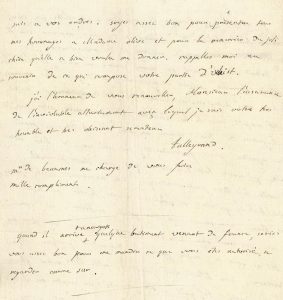 suis a vos ordres. soyez assez bon pour présenter tous
mes hommages a Madame et pour la manière
chère publié a bien voulu me donner, rappellez moi au
souvenir de ce qui compose votre
j'ai l'honneur de vous renouveller, Monsieur l'assurance
de l'inviolable attachement avec lequel je suis votre très
humble et très obéissant serviteur
Talleyrand.
mde de beaumes me charge de vous faire
mille compliments.
quand il arrive quelque batiment venant de france, seriez
vous assez bon pour me mander ce que vous êtes autorisé, a
regarder comme sur.